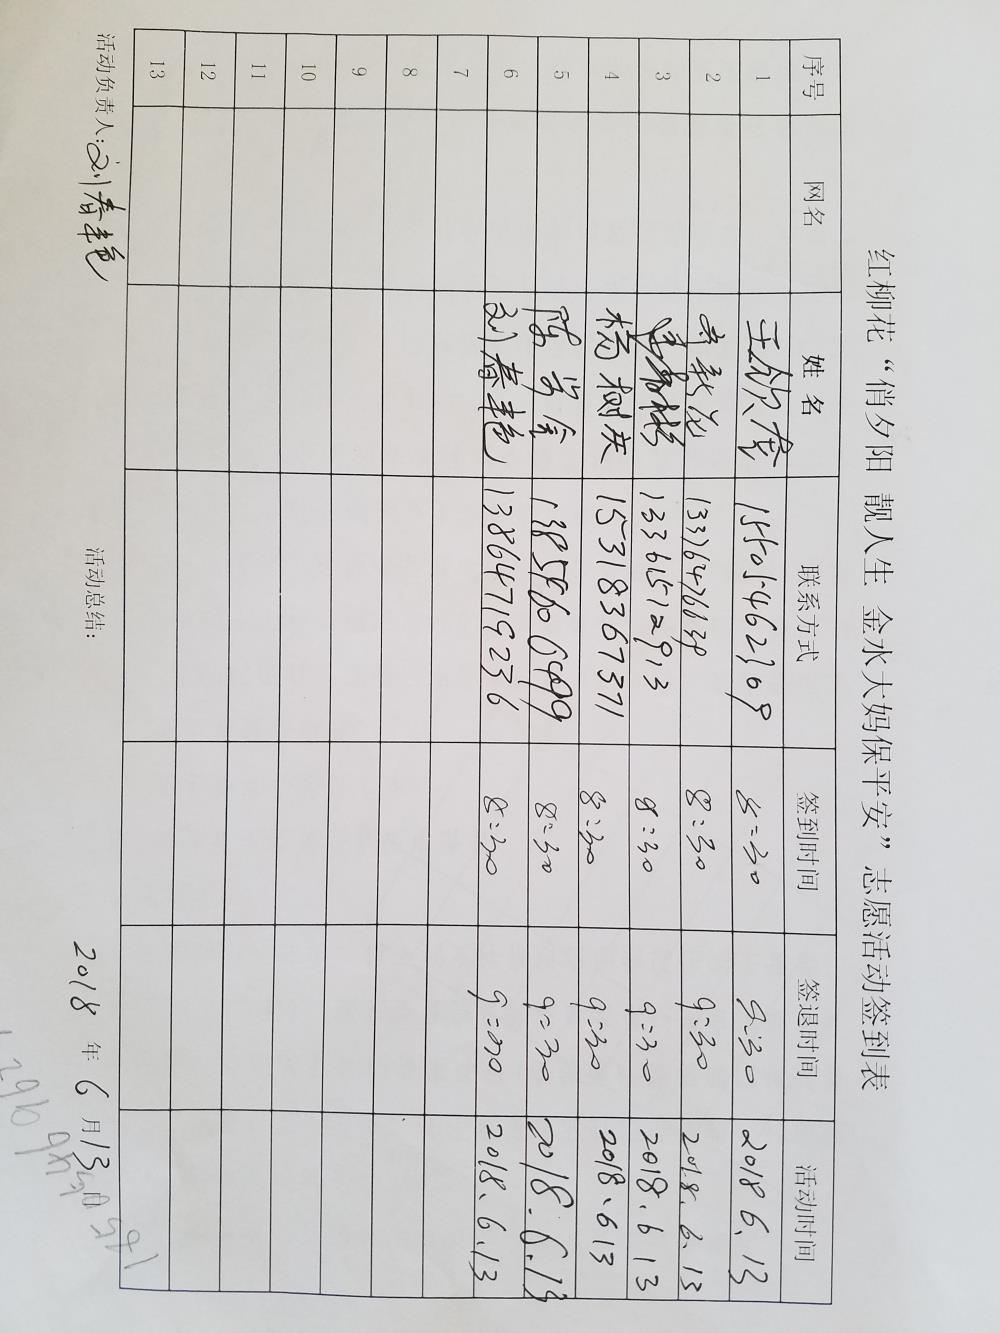 红柳花“俏夕阳 靓人生 金水大妈保平安”志愿活动签到表
序号 网名 姓名 联系方式 签到时间 签退时间 活动时间
1 15505462309 8:30 9:30 2018 6.13
2 13376476639 8:30 9:30 2018.6.13
3 13361512913 8:30 9:30 2018.6 13
4 杨树英 15318367371 8:30 9:30 2018.613
5 8:30 9:30 2018.6.13
6 刘春艳 13864719236 8:30 9:30 2018.6.13
7
8
9
10
11
12
13
活动负责人:刘春艳 活动总结: 2018年6月13日